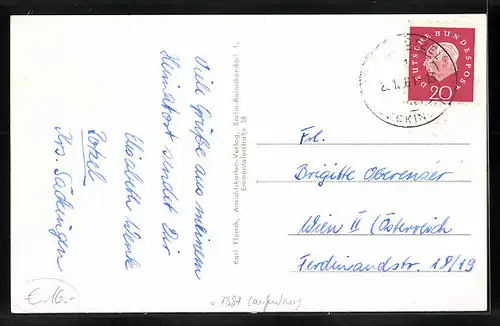 Viele Grüße aus meinem
Heimatort sendet Dir
Elisabeth
Krs. Säckingen
Karl Fleisch, Ansichtskarten-Verlag, Berlin-Reinickendorf 1,
Emmentalerstraße 58
DEUTSCHE BUNDESPOST
20
Frl.
Brigitte Oberenzer
Wien II (Österreich
Ferdinandstr. 18/19
€ 16.-